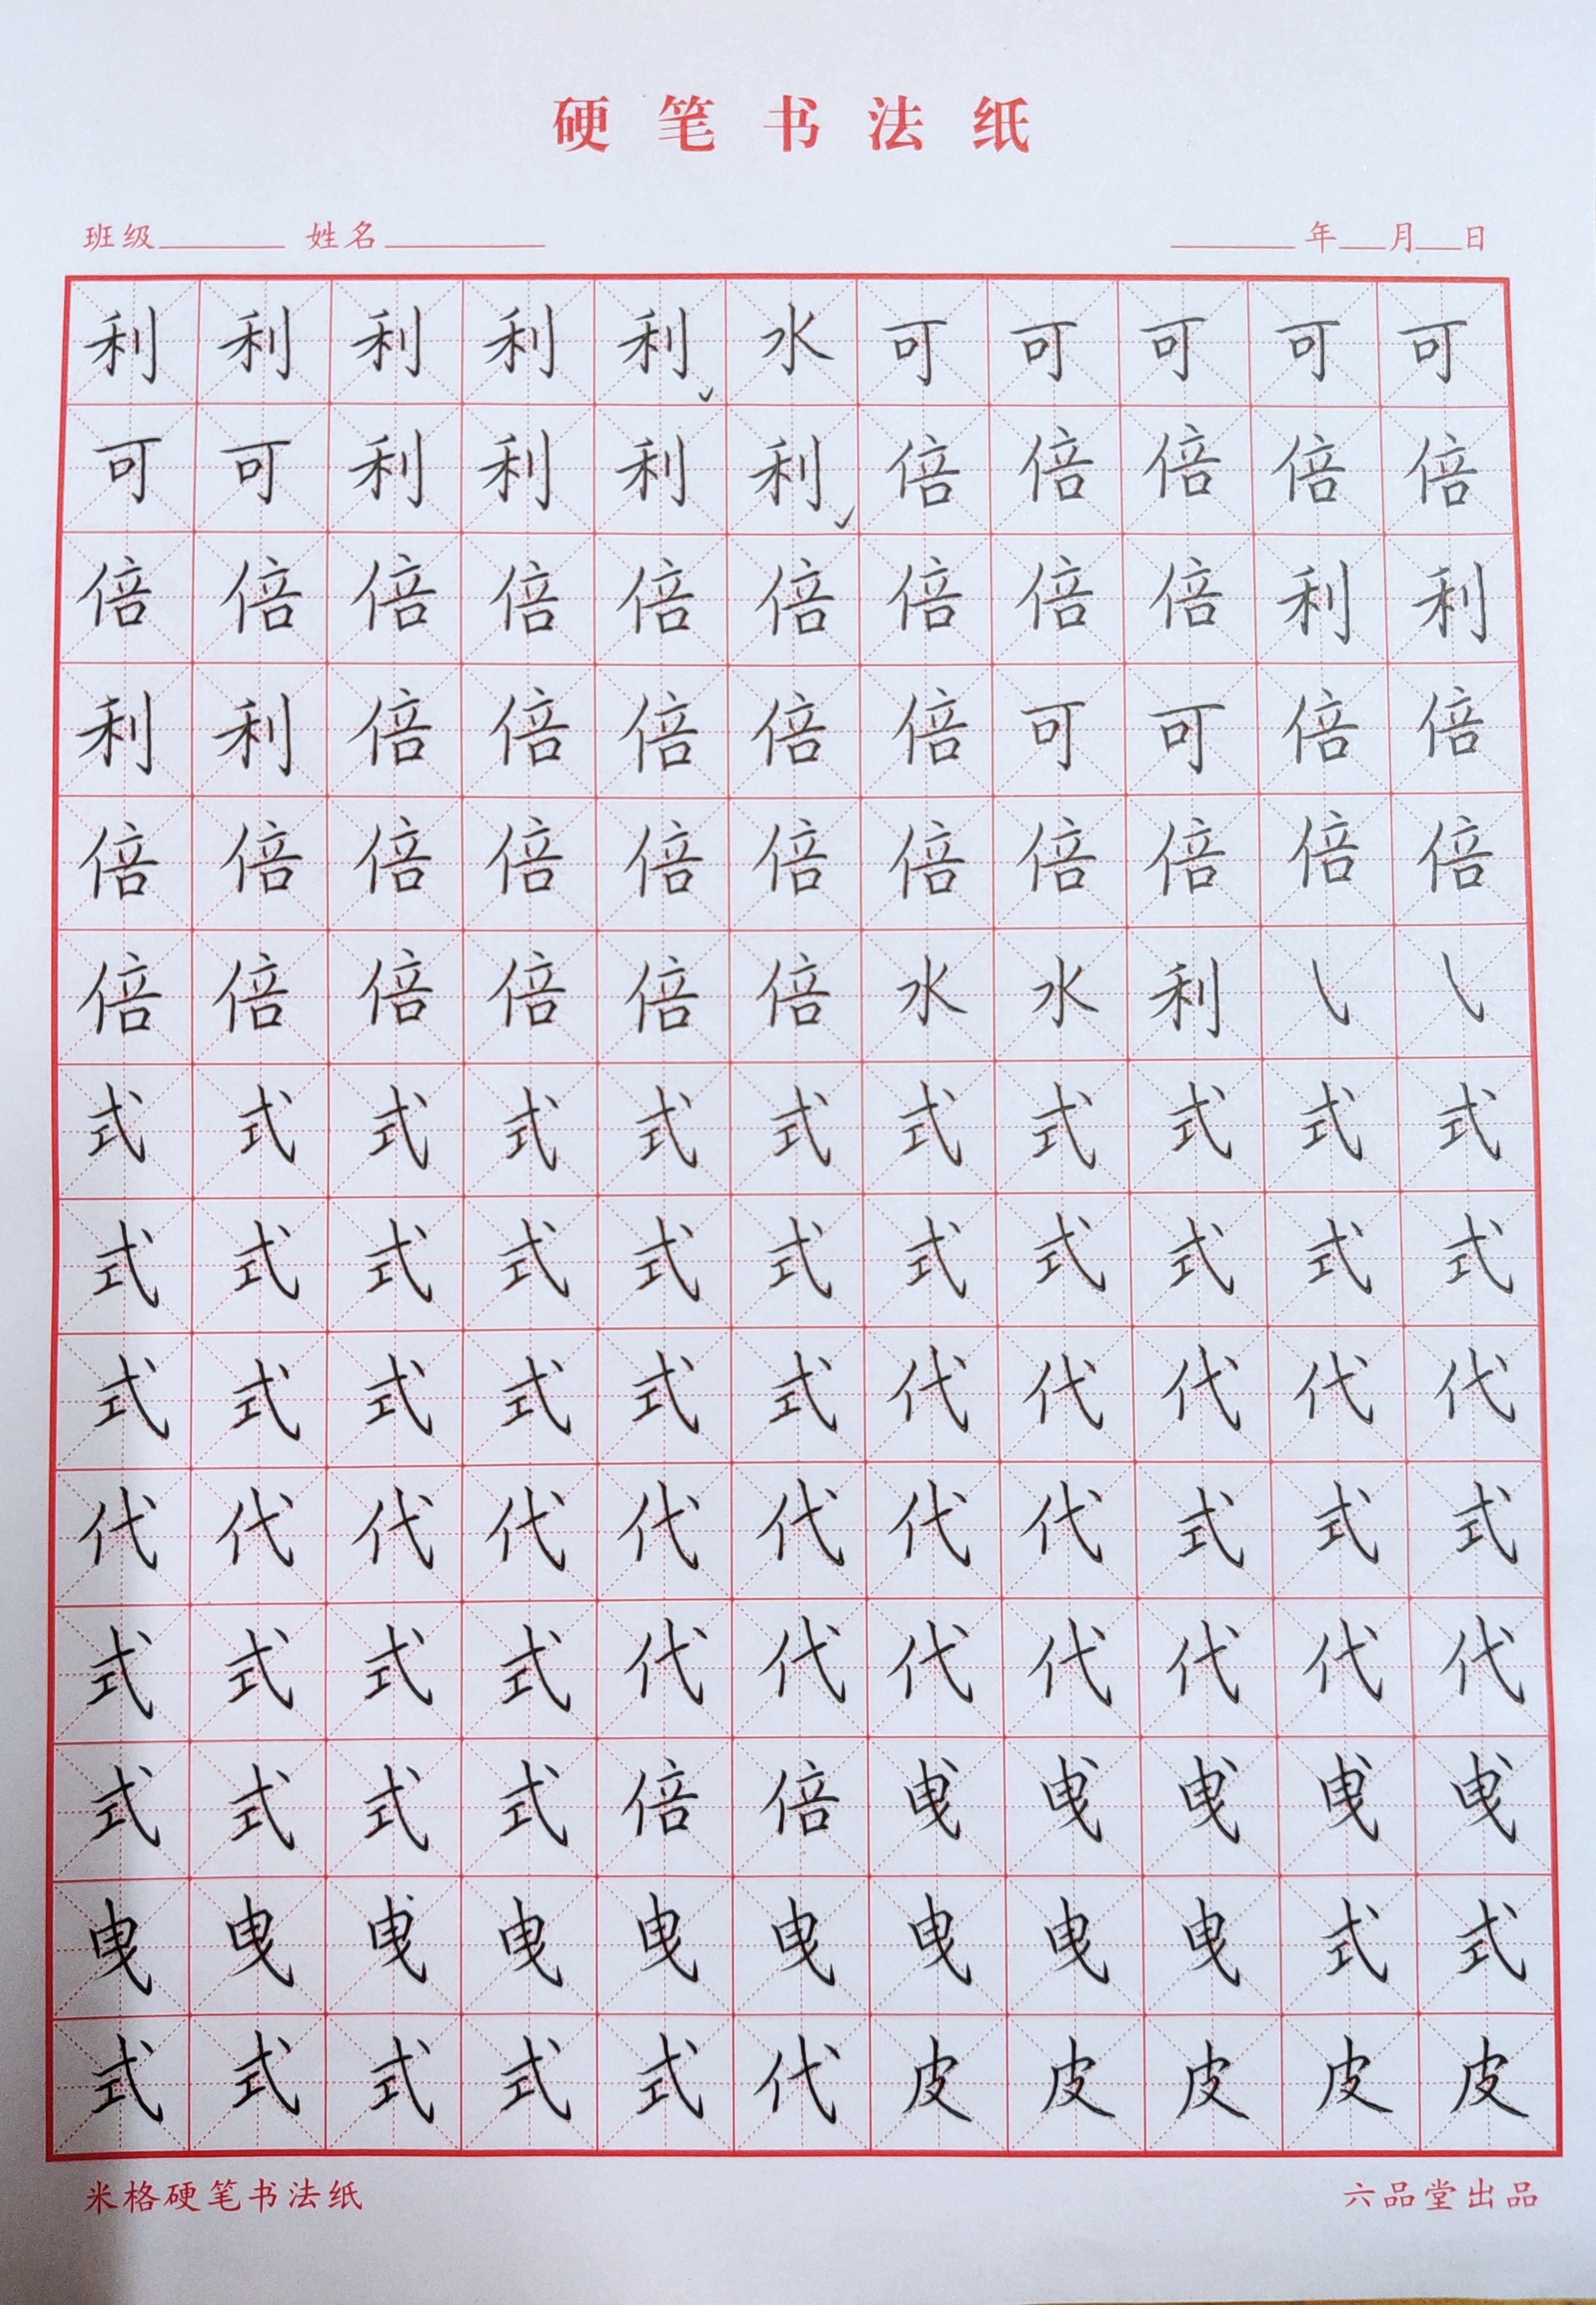 硬笔书法纸
班级 姓名 年 月 日
利利利利利水可可可可可
可可利利利利倍倍倍倍倍
倍倍倍倍倍倍倍倍倍利利
利利倍倍倍倍倍可可倍倍
倍倍倍倍倍倍倍倍倍倍倍
倍倍倍倍倍倍水水利㇂㇂
式式式式式式式式式式式
式式式式式式式式式式式
式式式式式式代代代代代
代代代代代代代代式式式
式式式式代代代代代代代
式式式式倍倍曳曳曳曳曳
曳曳曳曳曳曳曳曳曳式式
式式式式式代皮皮皮皮皮
米格硬笔书法纸 六品堂出品